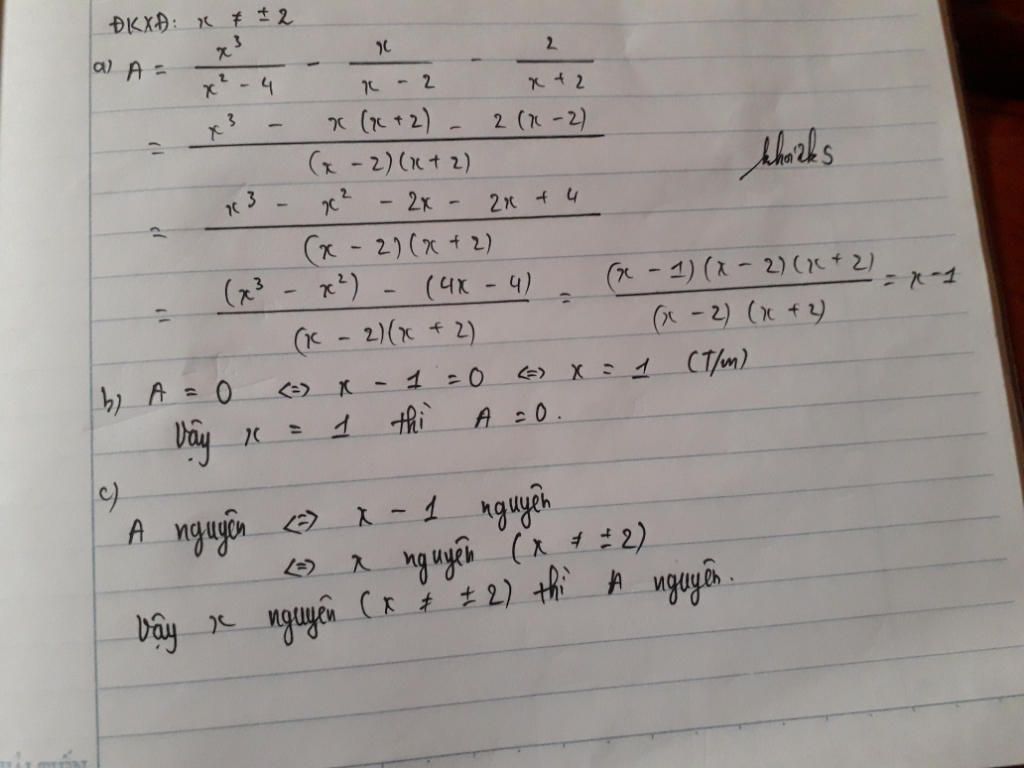 ĐKXĐ: x ≠ ±2
a) A = x³/(x² - 4) - x/(x - 2) - 2/(x + 2)
= (x³ - x(x+2) - 2(x-2))/((x-2)(x+2))
khoi2k5
= (x³ - x² - 2x - 2x + 4)/((x - 2)(x + 2))
= ((x³ - x²) - (4x - 4))/((x - 2)(x + 2)) = ((x - 1)(x - 2)(x + 2))/((x - 2)(x + 2)) = x - 1
b) A = 0 <=> x - 1 = 0 <=> x = 1 (T/m)
Vậy x = 1 thì A = 0.
c)
A nguyên <=> x - 1 nguyên
<=> x nguyên (x ≠ ±2)
Vậy x nguyên (x ≠ ±2) thì A nguyên.